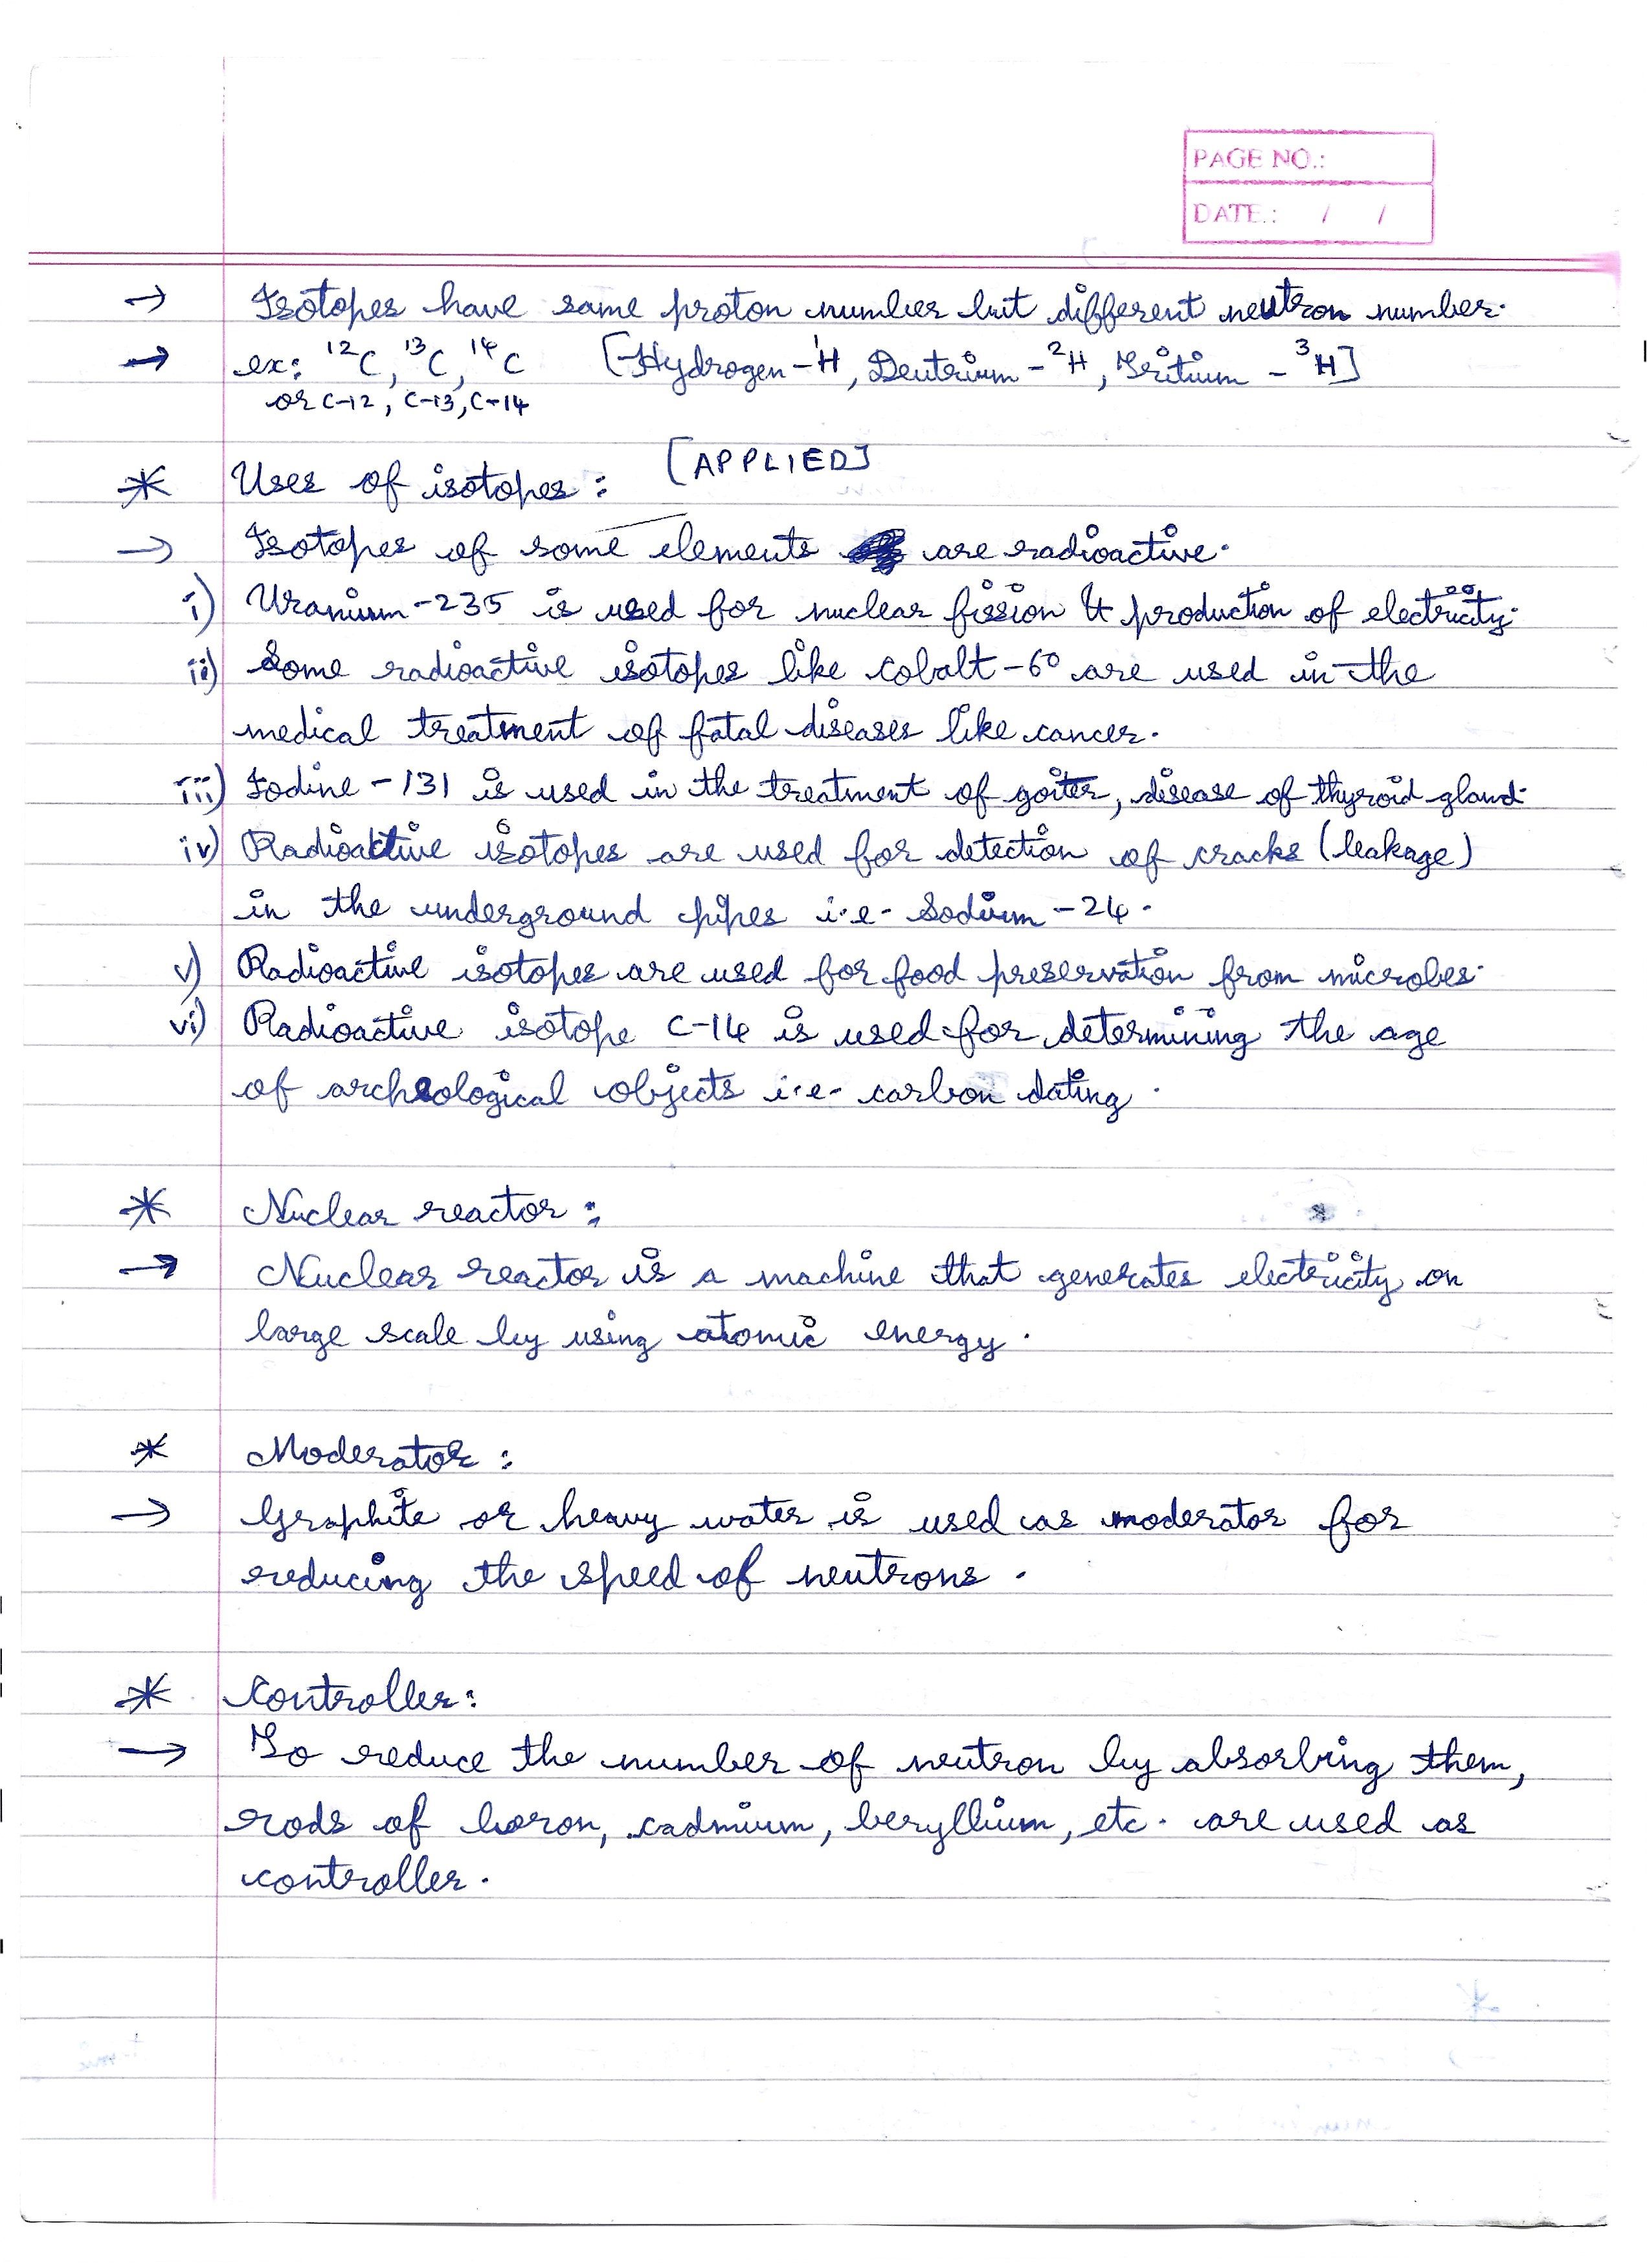 PAGE NO.:
DATE.: / /
→ Isotopes have same proton number but different neutron number.
→ ex: ¹²C, ¹³C, ¹⁴C [Hydrogen - ¹H, Deutrium - ²H, Tritium - ³H]
or C-12, C-13, C-14
* Uses of isotopes: [APPLIED]
→ Isotopes of some elements are radioactive.
i) Uranium-235 is used for nuclear fission & production of electricity.
ii) Some radioactive isotopes like cobalt-60 are used in the
medical treatment of fatal diseases like cancer.
iii) Iodine-131 is used in the treatment of goiter, disease of thyroid gland.
iv) Radioactive isotopes are used for detection of cracks (leakage)
in the underground pipes i.e. Sodium-24.
v) Radioactive isotopes are used for food preservation from microbes.
vi) Radioactive isotope C-14 is used for determining the age
of archeological objects i.e. carbon dating.
* Nuclear reactor:
→ Nuclear reactor is a machine that generates electricity on
large scale by using atomic energy.
* Moderator:
→ Graphite or heavy water is used as moderator for
reducing the speed of neutrons.
* Controller:
→ To reduce the number of neutron by absorbing them,
rods of boron, cadmium, beryllium, etc. are used as
controller.